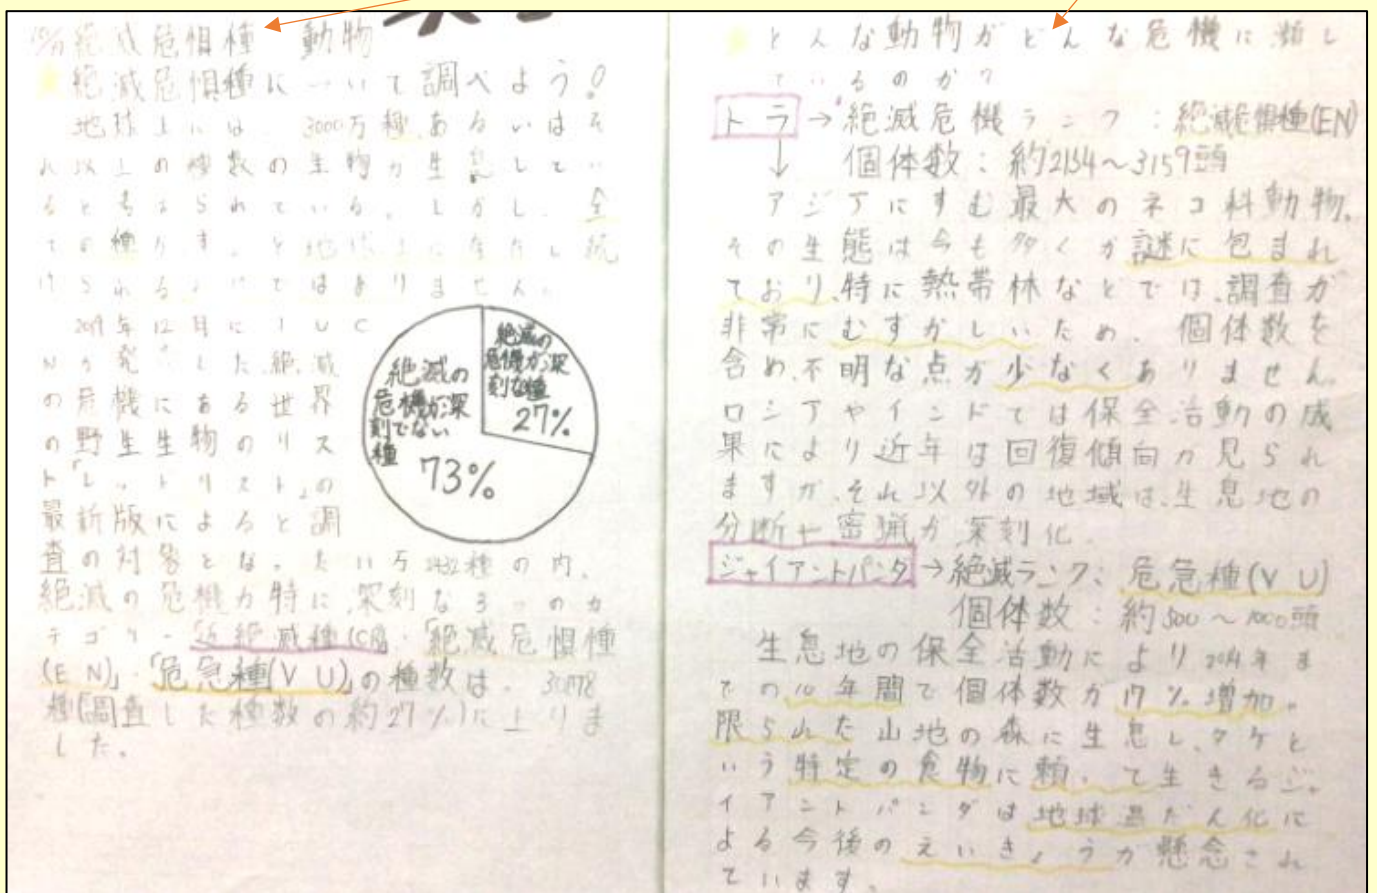 絶滅危惧種 動物
絶滅危惧種について調べよう!
地球上には、3000万種、あるいはそ
れ以上の種数の生物が生息してい
ると考えられている。しかし、全
ての種がずっと地球上に存在し続
けられるわけではありません。
2019年12月にIUC
Nが発表した、絶滅
の危機にある世界
の野生生物のリス
ト「レッドリスト」の
最新版によると調
査の対象となった11万2432種の内、
絶滅の危機が特に、深刻な3つのカ
テゴリー「近絶滅種(CR)」「絶滅危惧種
(EN)」「危急種(VU)」の種数は、30178
種(調査した種数の約27%)に上りま
した。
絶滅の
危機が深
刻な種
27%
絶滅の
危機が深
刻でない
種
73%
どんな動物がどんな危機に瀕し
ているのか?
トラ→絶滅危機ランク:絶滅危惧種(EN)
↓ 個体数:約2154~3159頭
アジアにすむ最大のネコ科動物。
その生態は今も多くが謎に包まれ
ており、特に熱帯林などでは、調査が
非常にむずかしいため、個体数を
含め、不明な点が少なくありません。
ロシアやインドでは保全活動の成
果により近年は回復傾向が見られ
ますが、それ以外の地域は、生息地の
分断や密猟が深刻化。
ジャイアントパンダ→絶滅ランク:危急種(VU)
個体数:約500~1000頭
生息地の保全活動により2014年ま
での10年間で個体数が17%増加。
限られた山地の森に生息し、タケと
いう特定の食物に頼って生きるジャ
イアントパンダは地球温だん化に
よる今後のえいきょうが懸念され
ています。